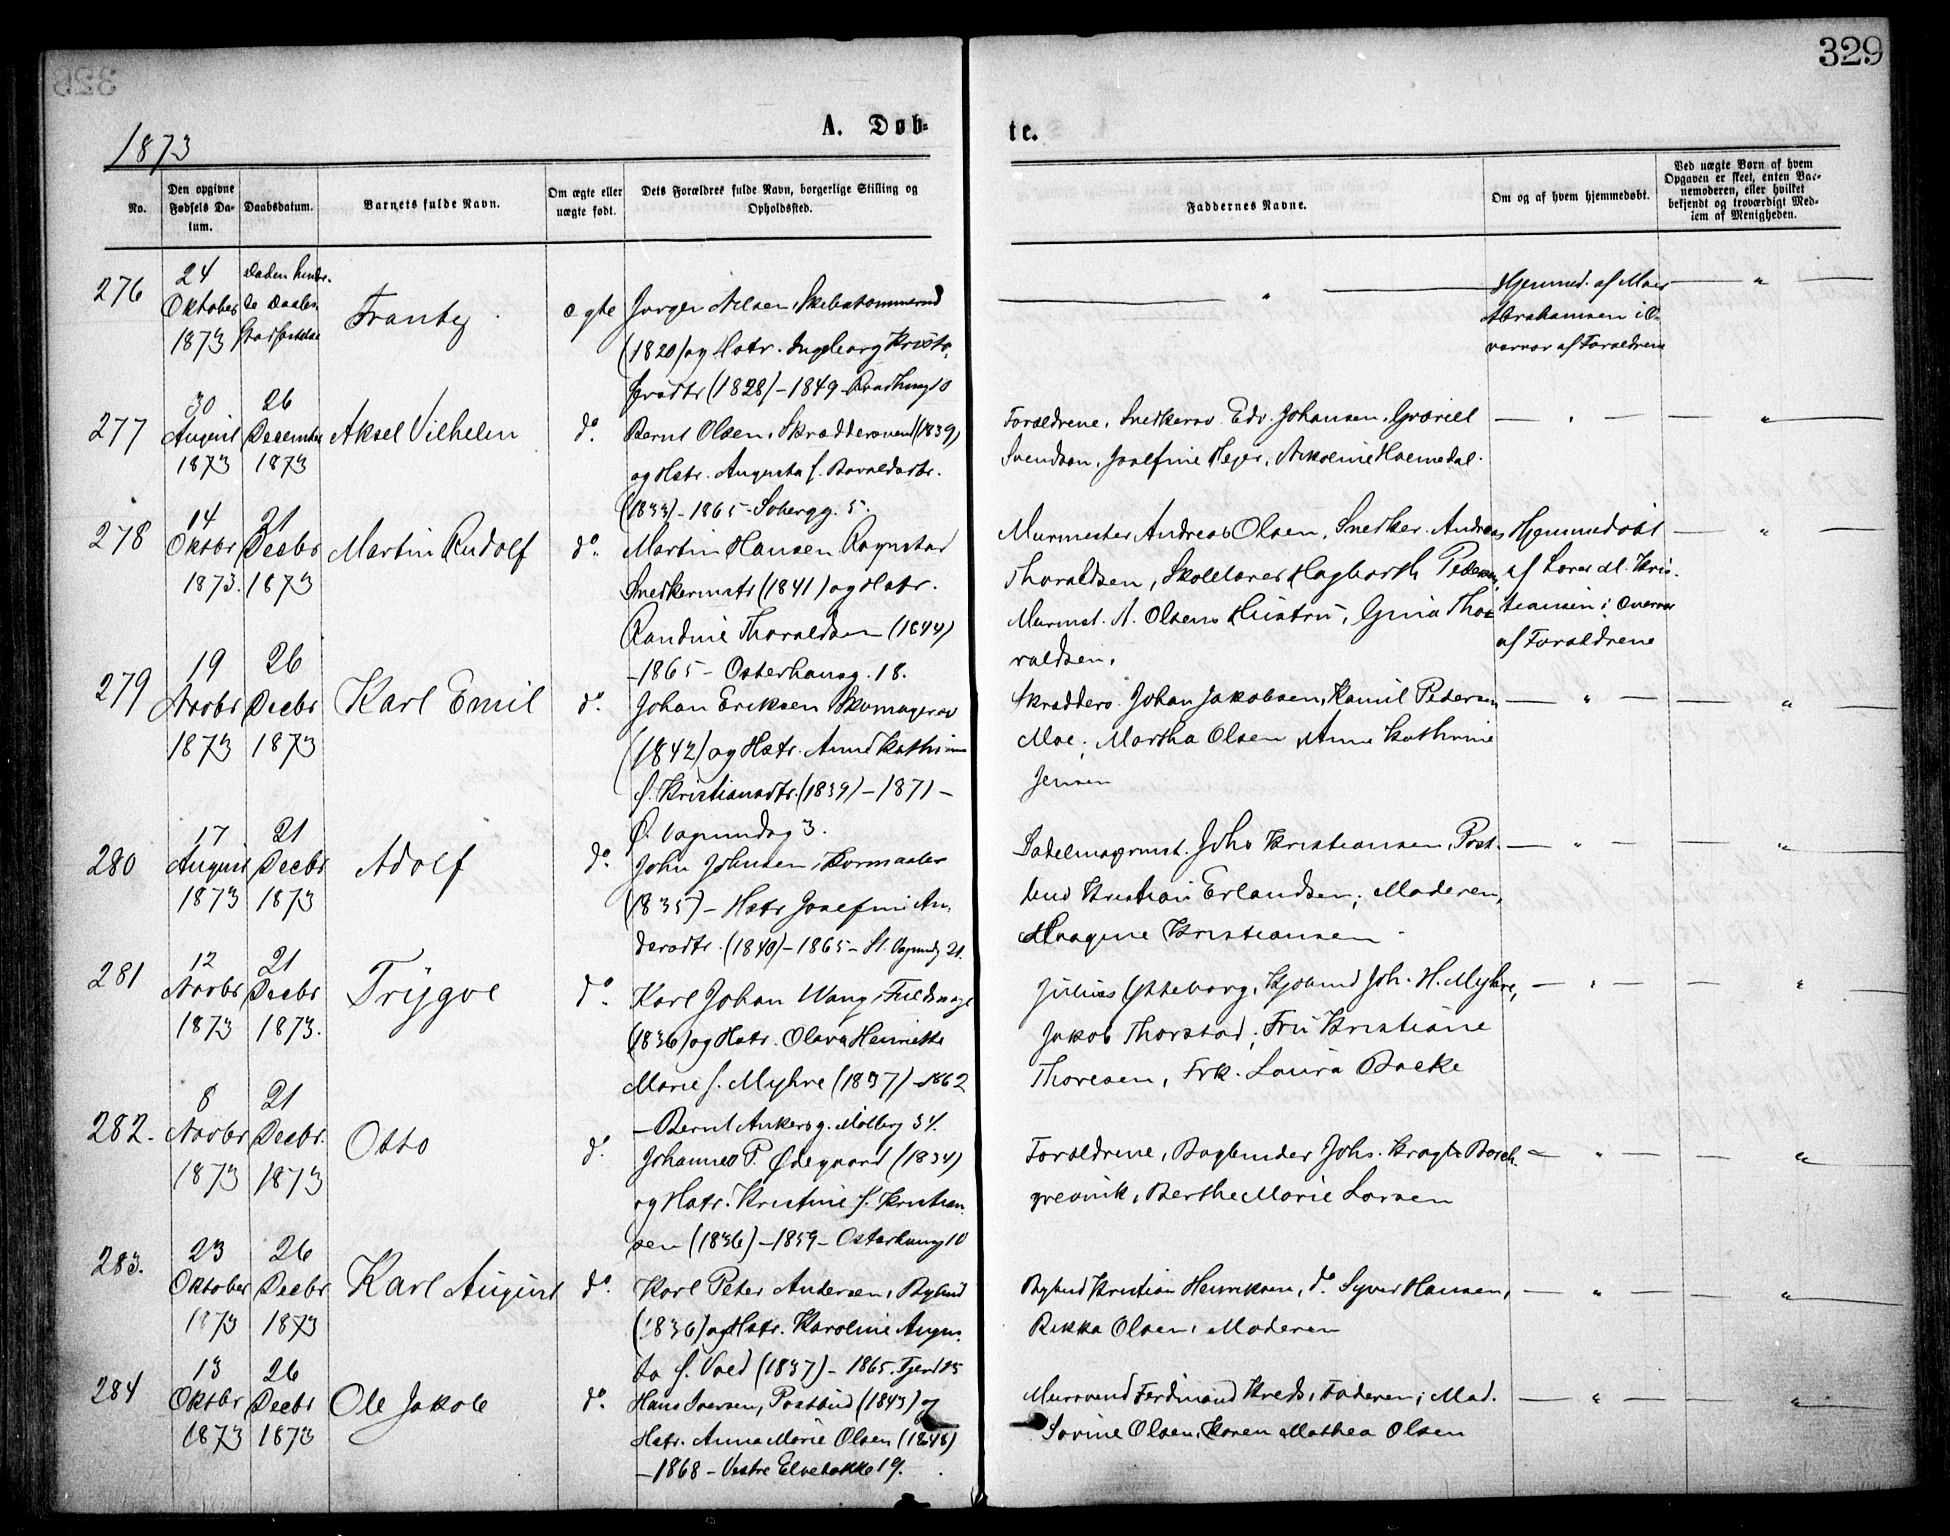 329
1873
A. Døb-
te.
No.
Den opgivne Fødsels Da-
tum.
Daabsdatum.
Barnets fulde Navn.
Om ægte eller
uægte født.
Dets Forældres fulde Navn, borgerlige Stilling og
Opholdssted.
Faddernes Navne.
Om og af hvem hjemmedøbt.
Ved uægte Børn af hvem
Opgaven er skeet, enten Bar-
nemoderen, eller hvilket
bekjendt og troværdigt Med-
lem af Menigheden.
276
24
Oktober
1873
Døden hindre-
de Daabs-
Stadfæstelse
Frantz
ægte
Jørgen Nilsen, Skibstømmermd
(1820) og Hstr. Ingeborg Kristo-
fersdtr (1828) – 1849 –
Hjemmed. af
Abrahamsen i O-
vervær af Forældrene
277
30
August
1873
26
December
1873
Aksel Vilhelm
do.
Bernt Olsen, Skræddersvend (1839)
og Hstr. Augusta f.
(1833) – 1865 – 5.
Forældrene, Snedkersv. Edv. Johansen,
Svendsen, Josefine
278
14
Oktbr
1873.
21
Decbr
1873
Martin Rudolf
do.
Martin Hansen Rognstad
Snedkermstr (1841) og Hstr.
Randine Thoraldsen (1844)
– 1865 – Osterhausg. 18.
Murmester Andreas Olsen, Snedker Andreas
Thoraldsen, Skolelærer Hagbarth Pedersen,
Murmst. A. Olsens Hustru, Gina Tho-
raldsen.
Hjemmedøbt
af M. Kris-
tiansen i Overvær
af Forældrene
279
19
Novbr
1873
26
Decbr
1873
Karl Emil
do.
Johan Eriksen Skomagersv
(1842) og Hstr. Anne Kathrine
f. Kristiansdtr. (1839) – 1871 –
Ø. Vognmandsg 3.
Skrædders. Johan Jakobsen, Kamil Pedersen
Moe, Martha Olsen, Anne Kathrine
Jensen
280
17
August
1873
21
Decbr
1873
Adolf
do.
John Johnsen,
(1835) – Hstr Josefine An-
dersdtr. (1840) – 1865 – St. Vognmdg 21.
Sadelmagermst. Johs Kristiansen, Post-
bud Kristian Erlandsen, Moderen,
Kristiansen
281
12
Novbr
1873
21
Decbr
1873.
Trygve
do.
Karl Johan Wang,
(1836) og Hstr. Olava Henriette
Marie f. Myhre (1837) – 1862
– Bernt Ankersg. 34.
Julius Ytteborg, Kjøbmd Joh. H. Myhre,
Jakob Thorstad, Fru Kristiane
Thoresen, Frk. Laura Bakke
282.
8
Novbr
1873
21
Decbr.
1873
Otto
do.
Johannes P. Ødegaard (1834)
og Hstr. Kristine f. Kristian-
sen (1836) – 1859 – Osterhausg 10
Forældrene, Bogbinder Johs.
grevink, Berthe Marie Larsen
283.
23
Oktober
1873
26
Decbr
1873
Karl August
do.
Karl Peter Andersen, Bybud
(1836) og Hstr. Karoline Augus-
ta f. (1837) – 1865.
Bybud Kristian Henriksen, do. Syver Hansen,
Rikka Olsen, Moderen
284
13
Oktbr
1873
26
Decbr
1873
Ole Jakob
do.
Hans Iversen, Postbud (1843) og
Hstr. Anna Marie Olsen (1848)
– 1868 – Vestre Elvebakke 19.
Mursvend Ferdinand Faderen, Mad.
Sorine Olsen, Karen Mathea Olsen